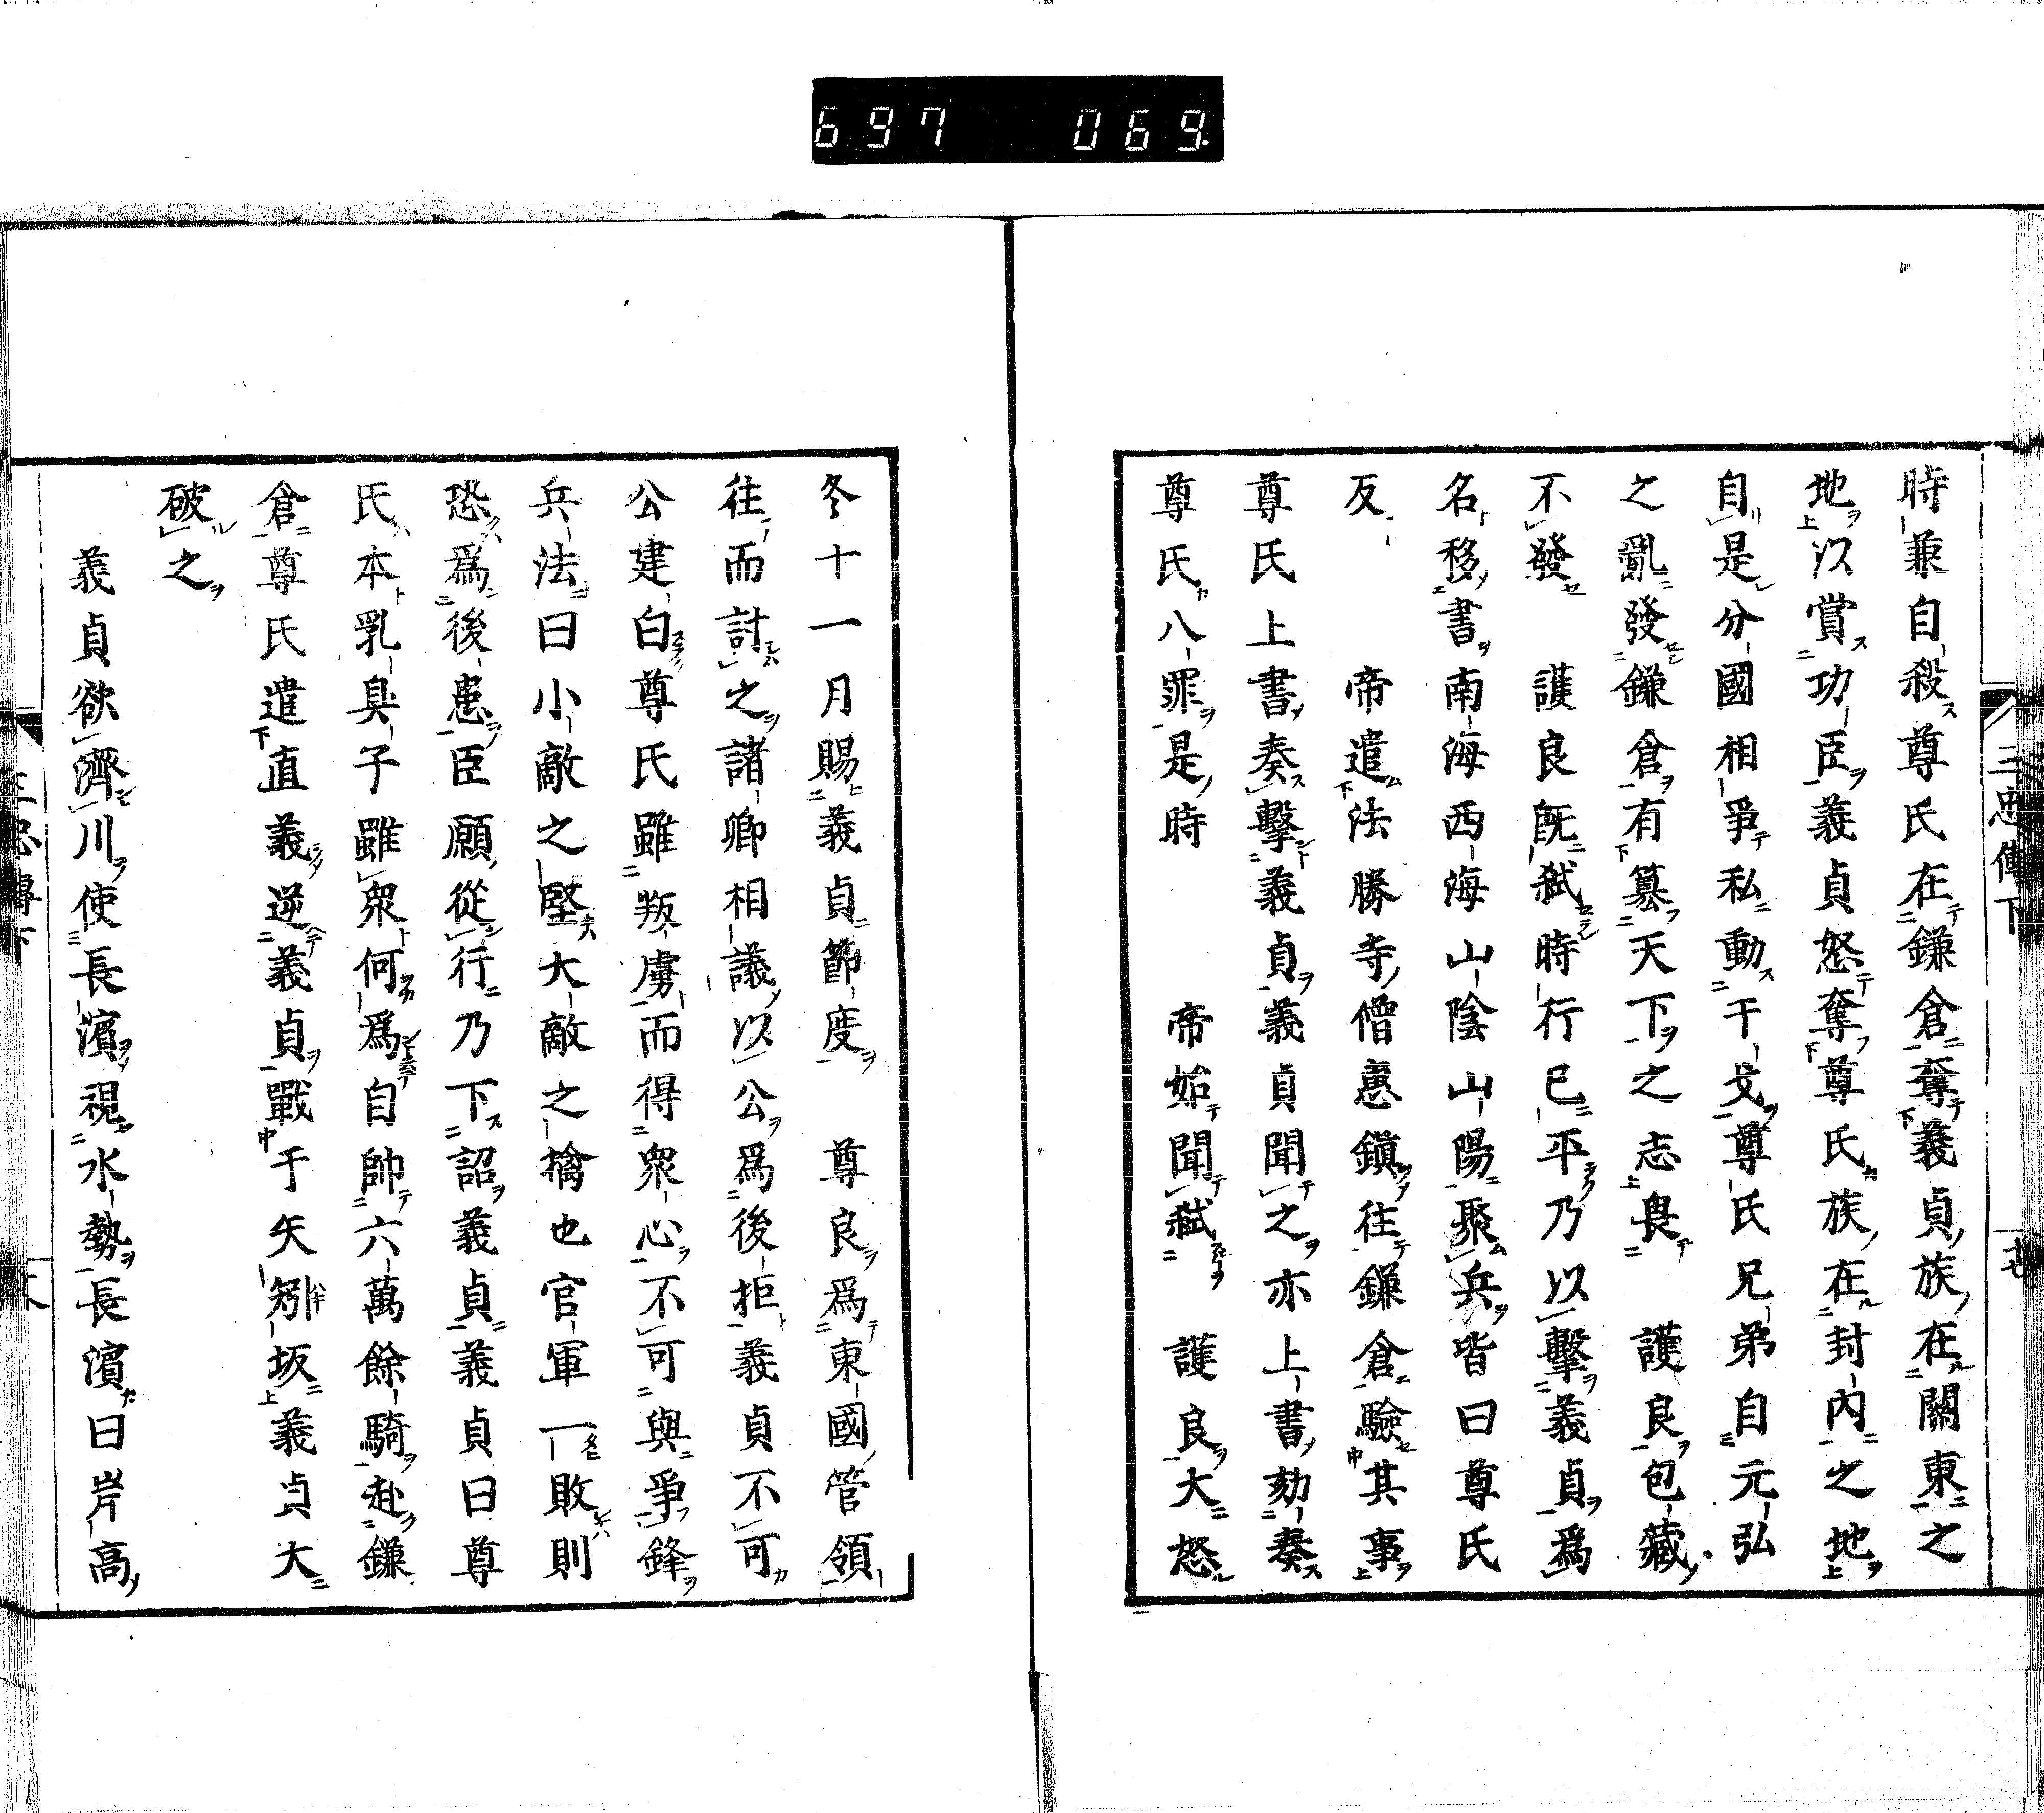 697 069
三忠傳下
時兼自殺尊氏在鎌倉奪義貞族在關東之
地以賞功臣義貞怒奪尊氏族在封内之地
自是分國相爭私動干戈尊氏兄弟自元弘
之亂發鎌倉有簒天下之志畏 護良包藏
不發 護良既弑時行已平乃以擊義貞爲
名移書南海西海山陰山陽聚兵皆曰尊氏
反 帝遣法勝寺僧惠鎭往鎌倉驗其事
尊氏上書奏擊義貞義貞聞之亦上書劾奏
尊氏八罪是時 帝始聞弑 護良大怒
冬十一月賜義貞節度 尊良爲東國管領
往而討之諸卿相議以公爲後拒義貞不可
公建白尊氏雖叛虜而得衆心不可與爭鋒
兵法曰小敵之堅大敵之擒也官軍一敗則
恐爲後患臣願從行乃下詔義貞義貞曰尊
氏本乳臭子雖衆何爲自帥六萬餘騎赴鎌
倉尊氏遣直義逆義貞戰于矢矧坂義貞大
破之
義貞欲濟川使長濱視水勢長濱曰岸高